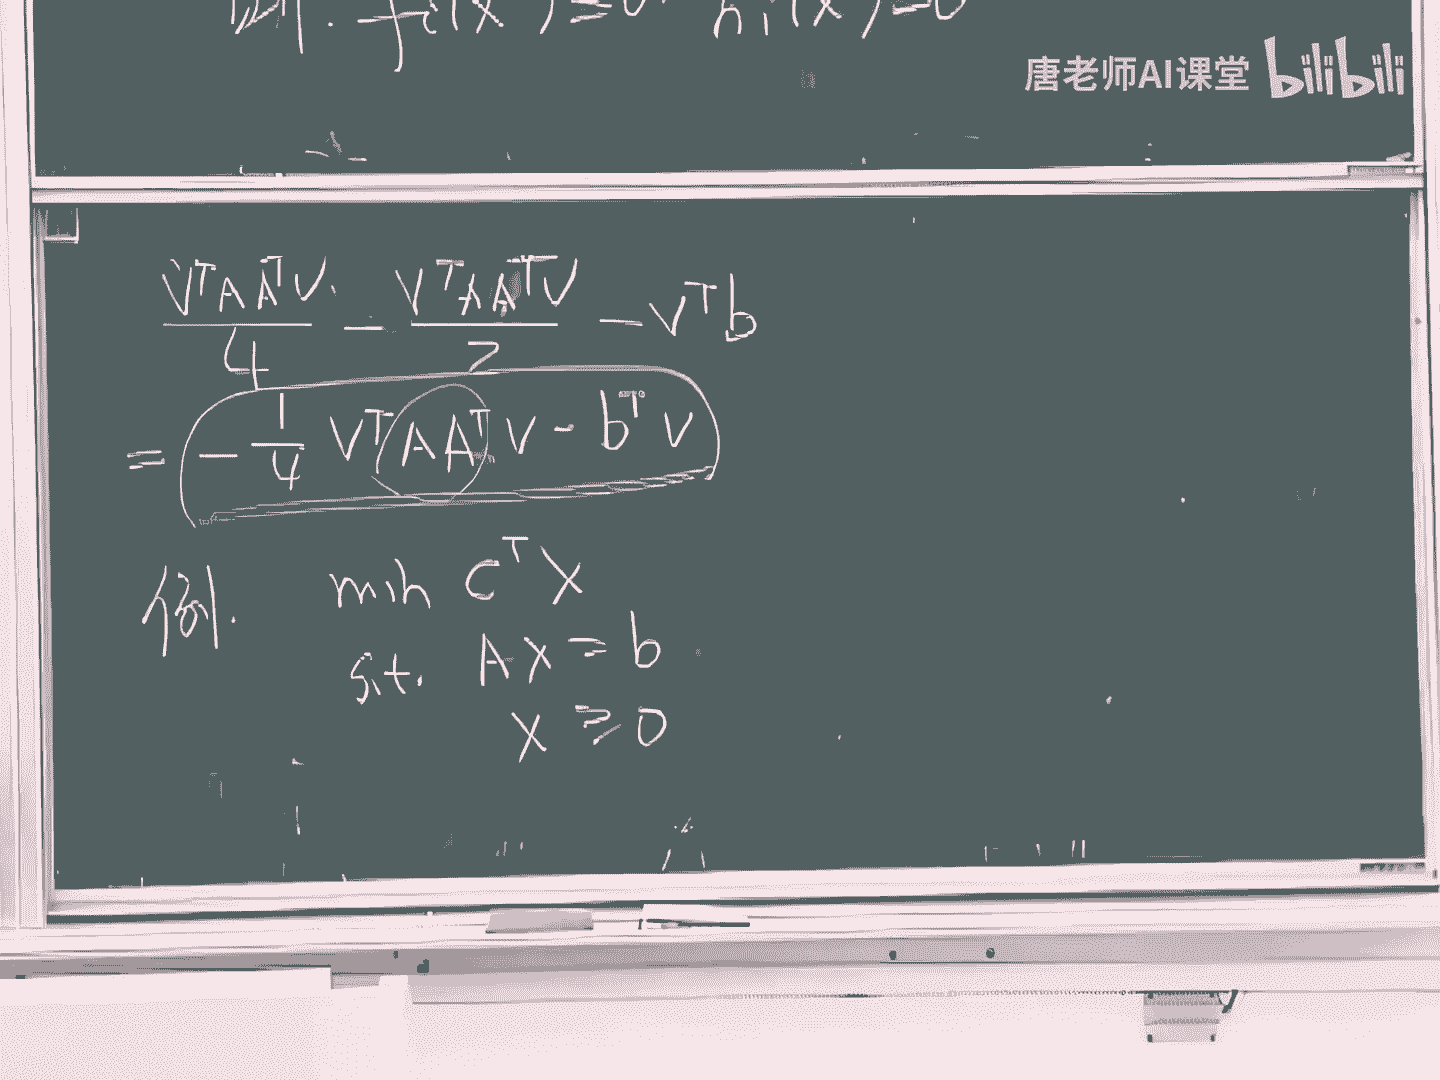 fi(x*)≤0. hi(x*)=0
唐老师AI课堂 bilibili
VᵀAAᵀV/4 - VᵀAAᵀV/2 - Vᵀb
= -1/4 VᵀAAᵀV - bᵀV
例. min CᵀX
s.t. AX = b
X ≥ 0